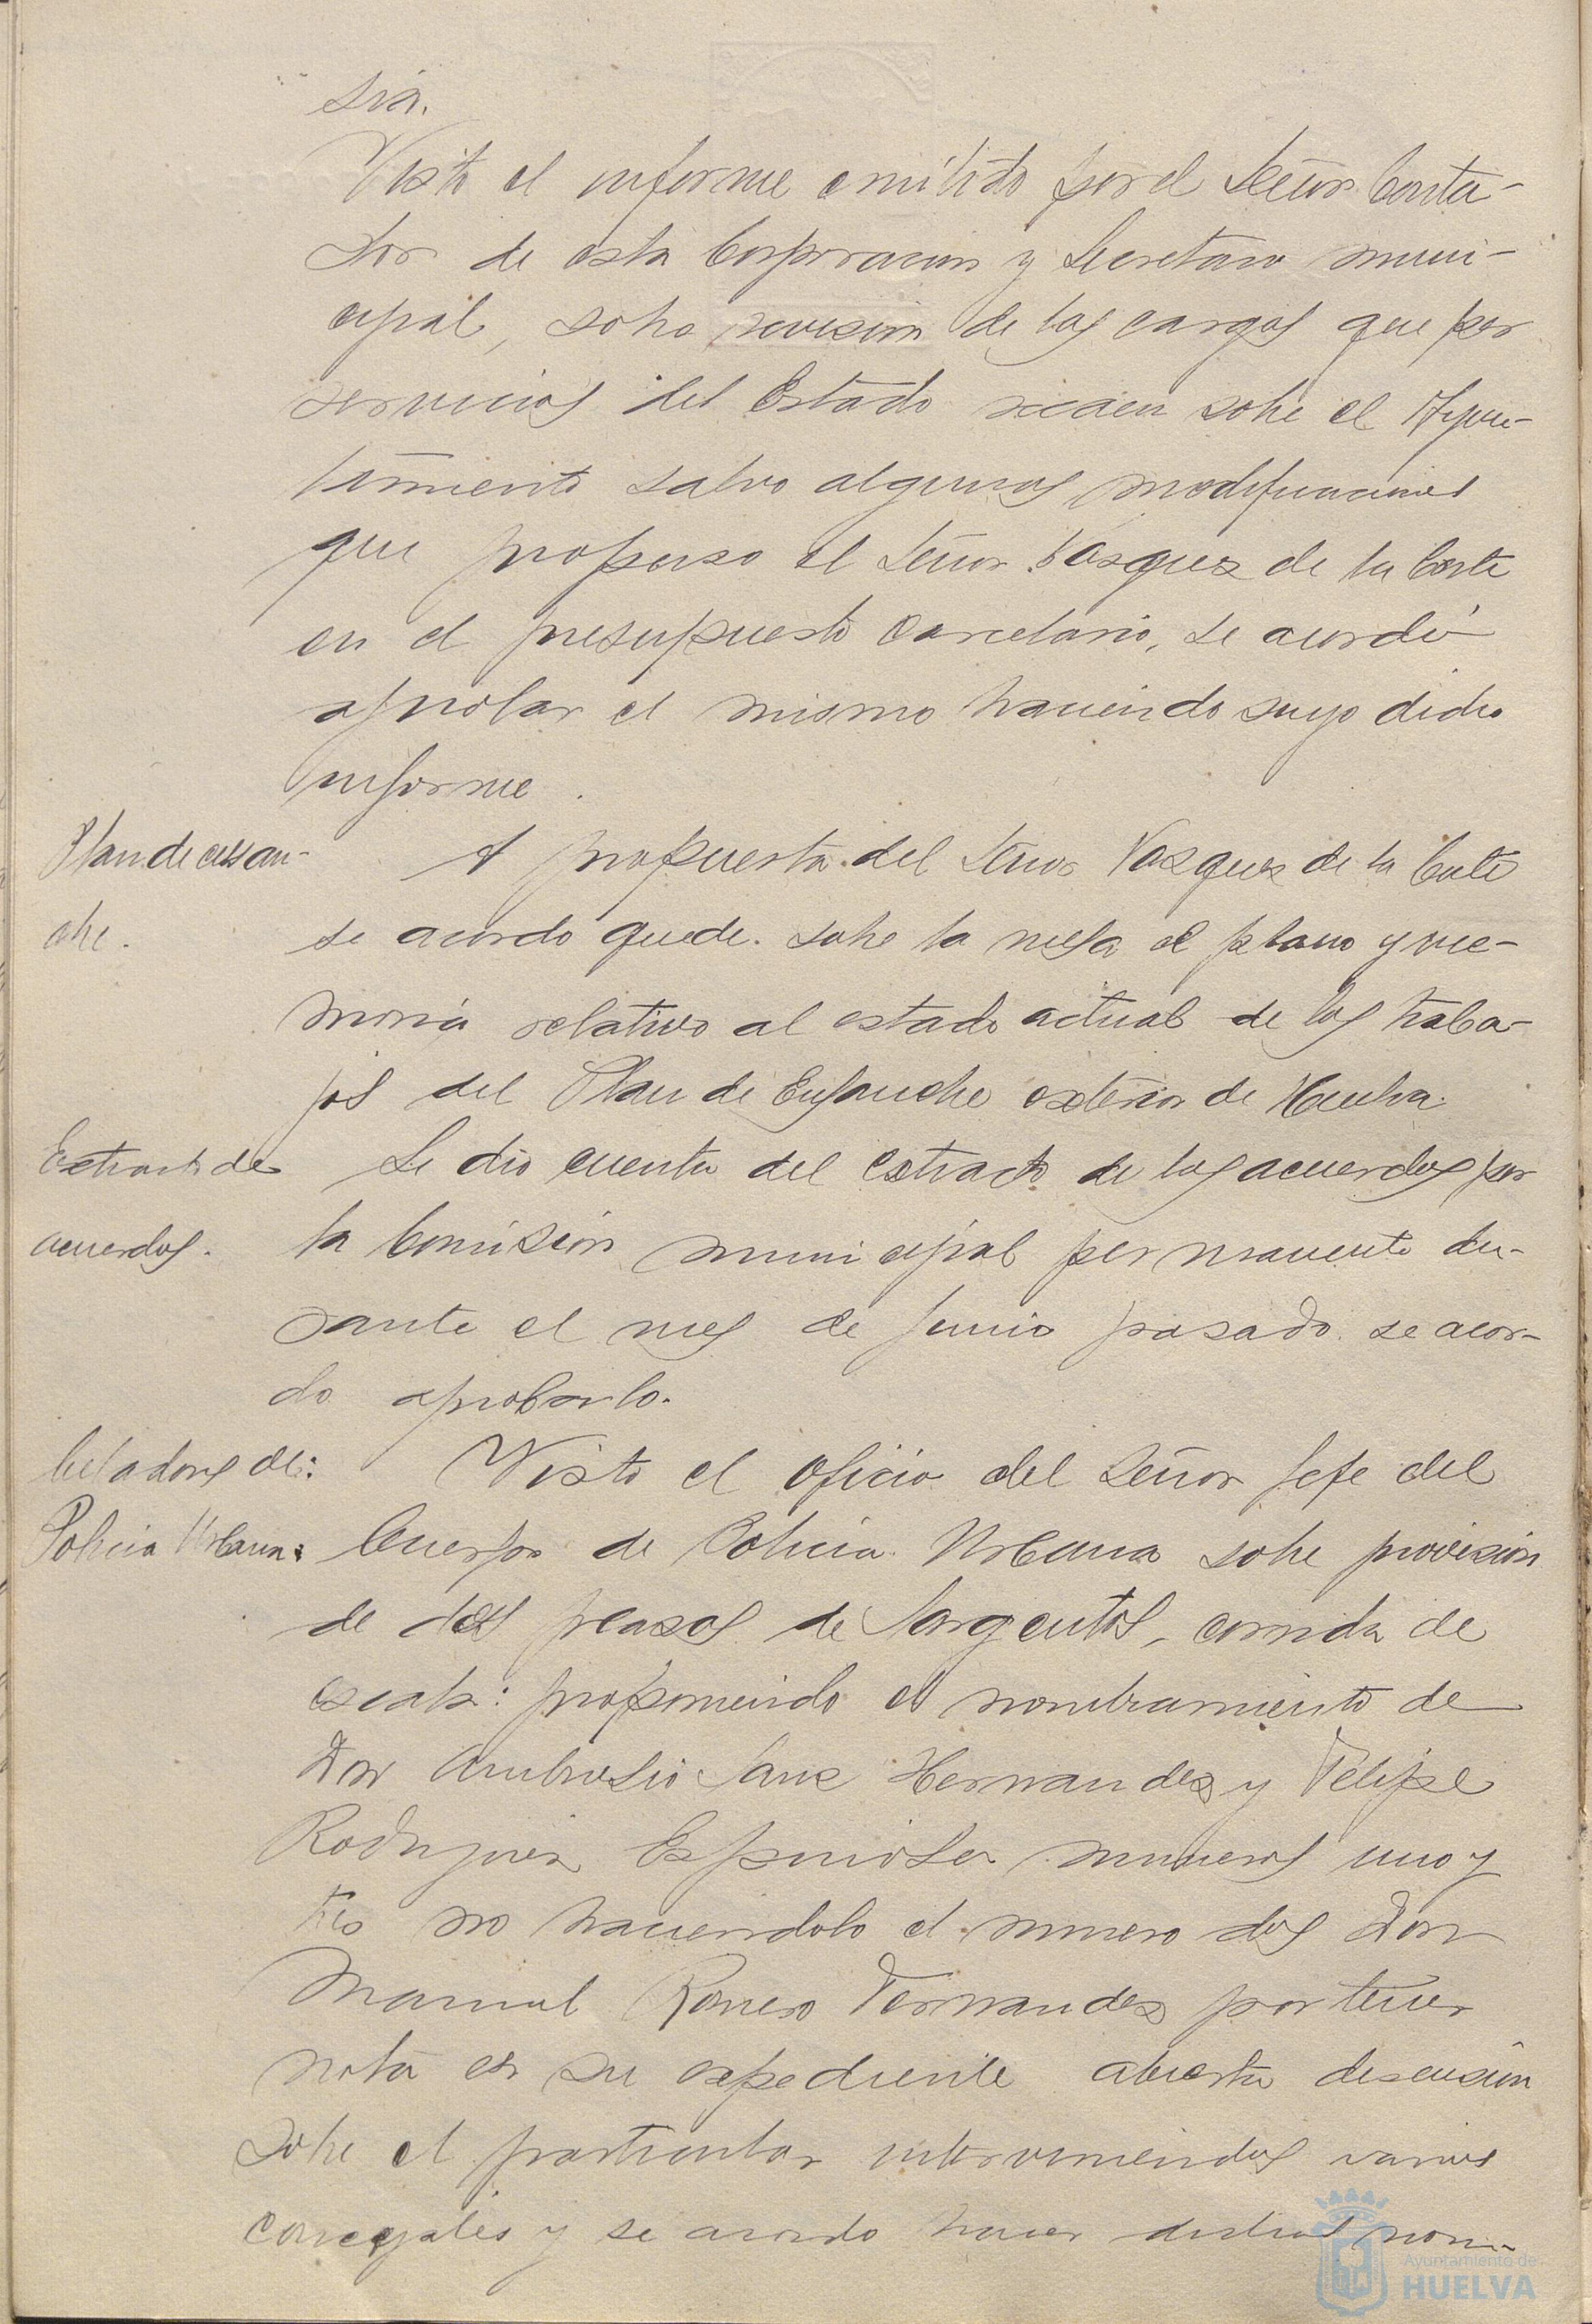 sia.
Visto el informe emitido por el Señor Conta-
dor de esta Corporacion y Secretario muni-
cipal, sobre revision de los cargos que por
servicios del Estado recaen sobre el Ayun-
tamiento salvo algunas modificaciones
que propuso el Señor Vazquez de la Corte
en el presupuesto carcelario, se acordó
aprobar el mismo haciendo suyo dicho
informe.
Plan de ensan-
che.
A propuesta del Señor Vazquez de la Corte
se acordo quede sobre la mesa el plano y me-
moria relativo al estado actual de los traba-
jos del Plan de Ensanche exterior de Huelva.
Extracto de
acuerdos.
Se dio cuenta del extracto de los acuerdos por
la Comision municipal permanente du-
rante el mes de Junio pasado se acor-
do aprobarlo.
Celadores de:
Policia Urbana:
Visto el oficio del Señor Jefe del
Cuerpo de Policia Urbana sobre provision
de dos plazas de Sargentos, corrida de
escala: proponiendo el nombramiento de
Don Ambrosio Sanz Hernandez y Felipe
Rodriguez Espinosa numeros uno y
tres no haciendolo el numero dos Don
Manuel Romero Fernandez por tener
nota en su expediente abierta discusion
sobre el particular interviniendos varios
concejales y se acordo hacer dichos nom-
Ayuntamiento de
HUELVA